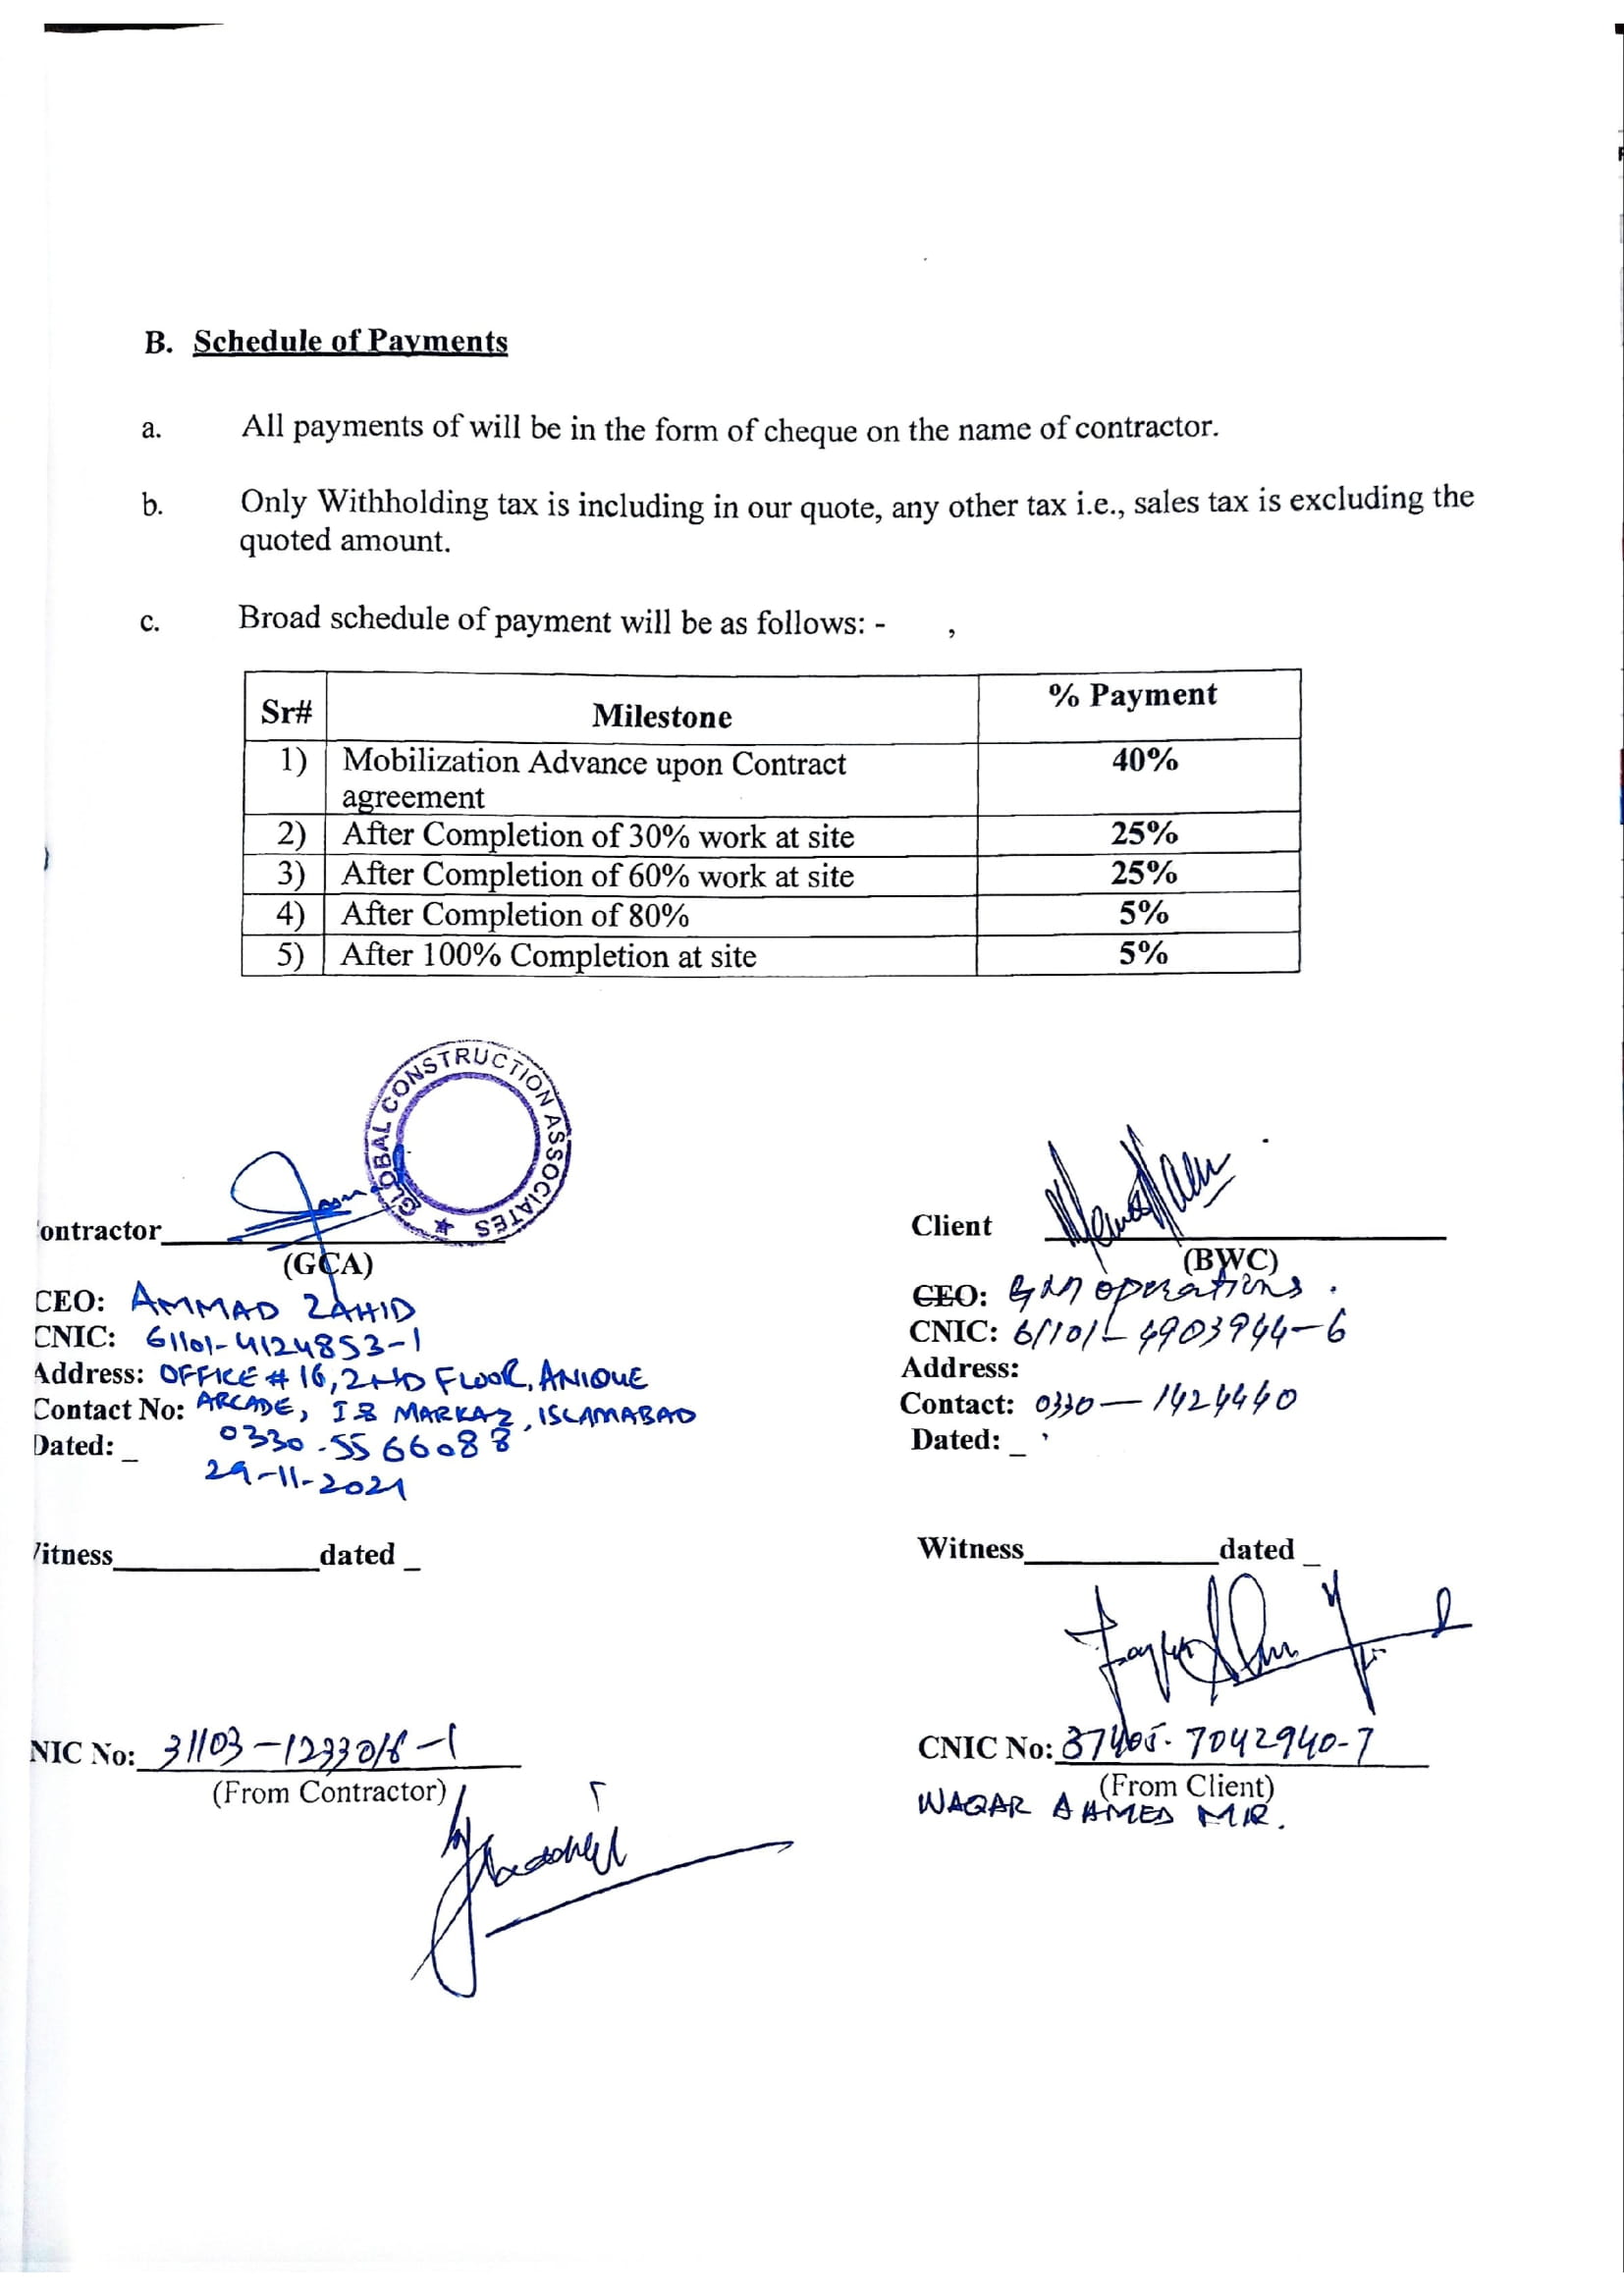 B. Schedule of Payments
a. All payments of will be in the form of cheque on the name of contractor.
b. Only Withholding tax is including in our quote, any other tax i.e., sales tax is excluding the
quoted amount.
c. Broad schedule of payment will be as follows: -
Sr# Milestone % Payment
1) Mobilization Advance upon Contract agreement 40%
2) After Completion of 30% work at site 25%
3) After Completion of 60% work at site 25%
4) After Completion of 80% 5%
5) After 100% Completion at site 5%
GLOBAL CONSTRUCTION ASSOCIATES ★
ontractor
(GCA)
CEO: AMMAD ZAHID
CNIC: 61101-4124853-1
Address: OFFICE # 16, 2ND FLOOR, ANIQUE
Contact No: ARCADE, I-8 MARKAZ, ISLAMABAD
0330-5566088
Dated: _
29-11-2021
Client
(BWC)
CEO: GM operations.
CNIC: 61101-4903944-6
Address:
Contact: 0330-1424440
Dated: _
itness dated _
NIC No: 31103-1233016-1
(From Contractor)
Witness dated _
CNIC No: 37405-7042940-7
(From Client)
WAQAR AHMED MIR.